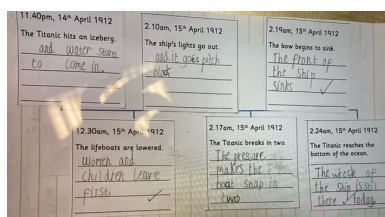 11.40pm, 14th April 1912
The Titanic hits an iceberg.
and water starts
to come in.
2.10am, 15th April 1912
The ship's lights go out.
and it goes pitch
black
2.19am, 15th April 1912
The bow begins to sink.
The front of
the ship
sinks
12.30am, 15th April 1912
The lifeboats are lowered.
Women and
children leave
first.
2.17am, 15th April 1912
The Titanic breaks in two.
The presure
makes the
boat snap in
two
2.24am, 15th April 1912
The Titanic reaches the
bottom of the ocean.
The wreck of
the ship is stil
there today